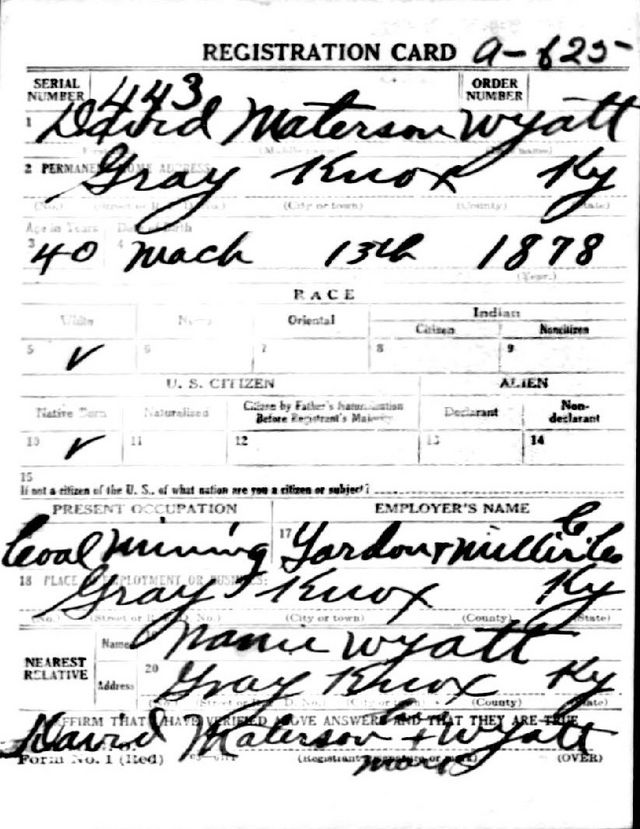 REGISTRATION CARD A-625
SERIAL NUMBER 443 ORDER NUMBER
1 David Materson Wyatt
2 PERMANENT HOME ADDRESS:
Gray Knox Ky
(No.) (Street or R. F. D. No.) (City or town) (County) (State)
Age in Years Date of Birth
3 40 4 Mach 13th 1878
(Year.)
RACE
White Negro Oriental Indian
Citizen Noncitizen
5 ✓ 6 7 8 9
U. S. CITIZEN ALIEN
Native Born Naturalized Citizen by Father's Naturalization Before Registrant's Majority Declarant Non-declarant
10 ✓ 11 12 13 14
15
If not a citizen of the U. S., of what nation are you a citizen or subject?
PRESENT OCCUPATION EMPLOYER'S NAME
Coal Mining 17
18 PLACE OF EMPLOYMENT OR BUSINESS:
Gray Knox Ky
(No.) (Street or R. F. D. No.) (City or town) (County) (State)
NEAREST RELATIVE Name Nanie Wyatt
Address 20 Gray Knox Ky
(No.) (Street or R. F. D. No.) (City or town) (County) (State)
I AFFIRM THAT I HAVE VERIFIED ABOVE ANSWERS AND THAT THEY ARE TRUE
David Materson + Wyatt
Form No. 1 (Red) (Registrant's signature or mark) (OVER)
mark